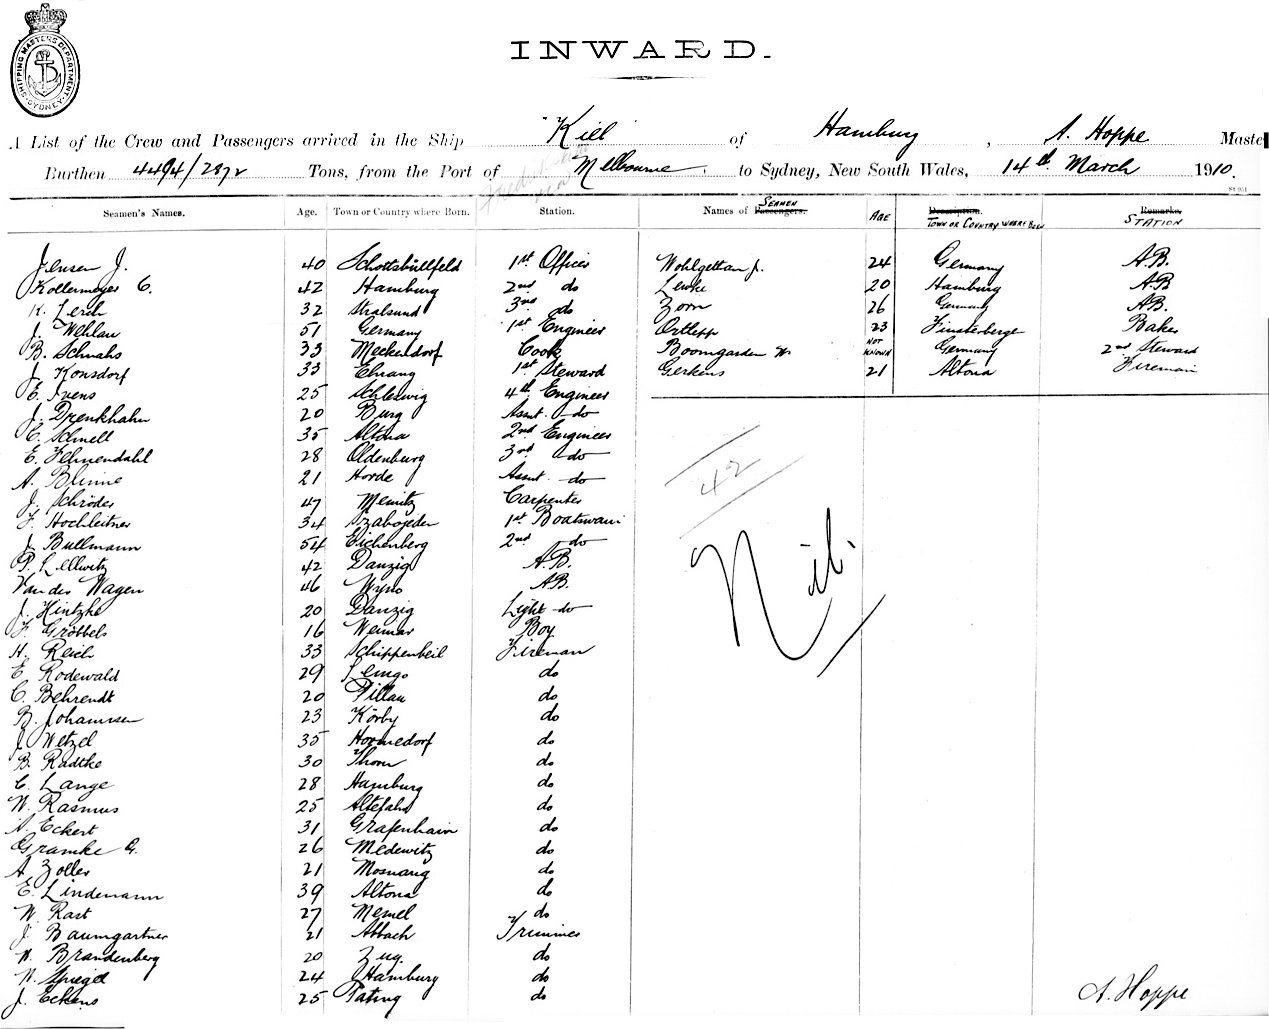 SHIPPING MASTERS DEPARTMENT SYDNEY
INWARD.
A List of the Crew and Passengers arrived in the Ship "Kiel" of Hamburg, A. Hoppe Maste
Burthen 4494/2872 Tons, from the Port of Melbourne, to Sydney, New South Wales, 14th March 1910.
Seamen's Names. Age. Town or Country where Born. Station. Names of Passengers. SEAMEN AGE Description. TOWN OR COUNTRY WHERE BORN Remarks. STATION
Jensen J. 40 Schottsbüllfeld 1st Officer Wohlgethan J. 24 Germany A.B.
Kollermeyer C. 42 Hamburg 2nd do Lemke 20 Hamburg A.B
K. Lerch 32 Stralsund 3rd do Zorn 26 Germany A.B.
J. Wehlau 51 Germany 1st Engineer Ortlepp 23 Finsterberge Baker
B. Schwahs 33 Meckendorf Cook Boomgarden W. NOT KNOWN Germany 2nd Steward
J. Konsdorf 33 Elnang 1st Steward Gerkens 21 Altona Fireman
E. Ivens 25 Schleswig 4th Engineer
J. Drenkhahn 20 Burg Assnt. do
C. Schnell 35 Altona 2nd Engineer
E. Fehnendahl 28 Oldenburg 3rd do
A. Blinne 21 Horde Assnt. do
J. Schröder 47 Mewitz Carpenter
F. Hochleitner 34 Szabojeden 1st Boatswain
J. Bullmann 54 Eichenberg 2nd do
P. Lellwitz 42 Danzig A.B.
Van der Wagen 46 Wyns A.B.
J. Hintzke 20 Danzig Light do
F. Gröbbels 16 Weimar Boy
H. Reich 33 Schippenbeil Fireman
E. Rodewald 29 Lemgo do
C. Behrendt 20 Pillau do
B. Johannsen 23 Körby do
J. Wetzel 35 Hornedorf do
B. Radtke 30 Thorn do
C. Lange 28 Hamburg do
W. Rasmus 25 Altefahr do
A. Eckert 31 Grafenhain do
Gramke G. 26 Medewitz do
A. Zoller 21 Mosnang do
E. Lindemann 39 Altona do
W. Rast 27 Memel do
J. Baumgartner 21 Abbach Trimmer
W. Brandenberg 20 Zug. do
W. Spiegel 24 Hamburg do
J. Eckens 25 Tating do
42
Nil.
A. Hoppe